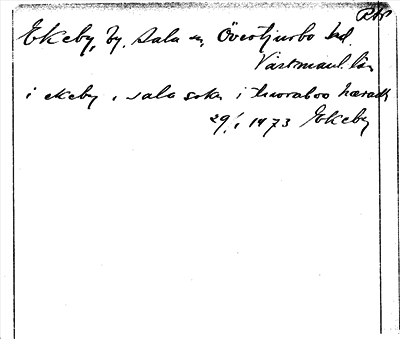 RAP
Ekeby, by, Sala sn, Övertjurbo hd,
Västmanl. län
i ekeby i sala sokn i thioraboo hæradh
29/1 1473 Ekeby